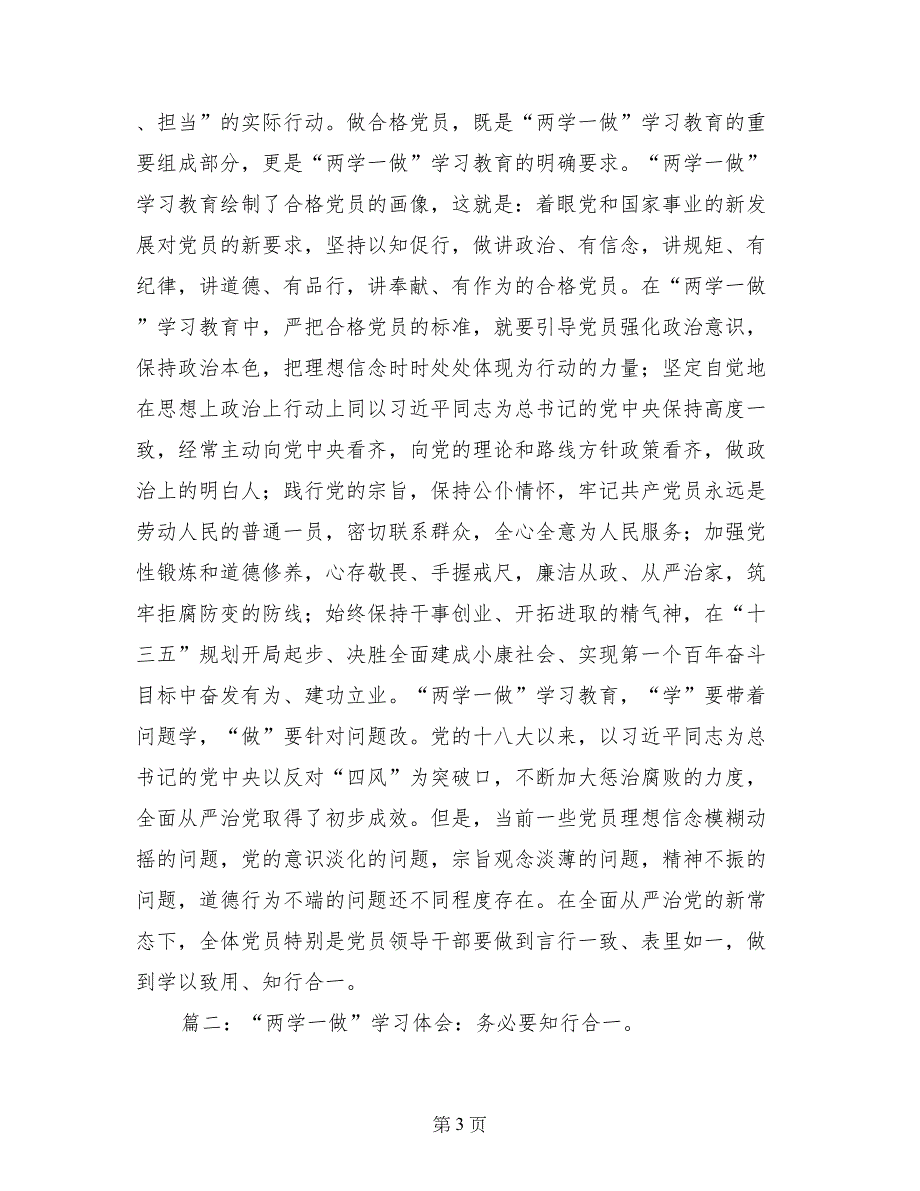 、担当”的实际行动。做合格党员，既是“两学一做”学习教育的重
要组成部分，更是“两学一做”学习教育的明确要求。“两学一做”
学习教育绘制了合格党员的画像，这就是：着眼党和国家事业的新发
展对党员的新要求，坚持以知促行，做讲政治、有信念，讲规矩、有
纪律，讲道德、有品行，讲奉献、有作为的合格党员。在“两学一做
”学习教育中，严把合格党员的标准，就要引导党员强化政治意识，
保持政治本色，把理想信念时时处处体现为行动的力量；坚定自觉地
在思想上政治上行动上同以习近平同志为总书记的党中央保持高度一
致，经常主动向党中央看齐，向党的理论和路线方针政策看齐，做政
治上的明白人；践行党的宗旨，保持公仆情怀，牢记共产党员永远是
劳动人民的普通一员，密切联系群众，全心全意为人民服务；加强党
性锻炼和道德修养，心存敬畏、手握戒尺，廉洁从政、从严治家，筑
牢拒腐防变的防线；始终保持干事创业、开拓进取的精气神，在“十
三五”规划开局起步、决胜全面建成小康社会、实现第一个百年奋斗
目标中奋发有为、建功立业。“两学一做”学习教育，“学”要带着
问题学，“做”要针对问题改。党的十八大以来，以习近平同志为总
书记的党中央以反对“四风”为突破口，不断加大惩治腐败的力度，
全面从严治党取得了初步成效。但是，当前一些党员理想信念模糊动
摇的问题，党的意识淡化的问题，宗旨观念淡薄的问题，精神不振的
问题，道德行为不端的问题还不同程度存在。在全面从严治党的新常
态下，全体党员特别是党员领导干部要做到言行一致、表里如一，做
到学以致用、知行合一。
篇二：“两学一做”学习体会：务必要知行合一。
第 3 页